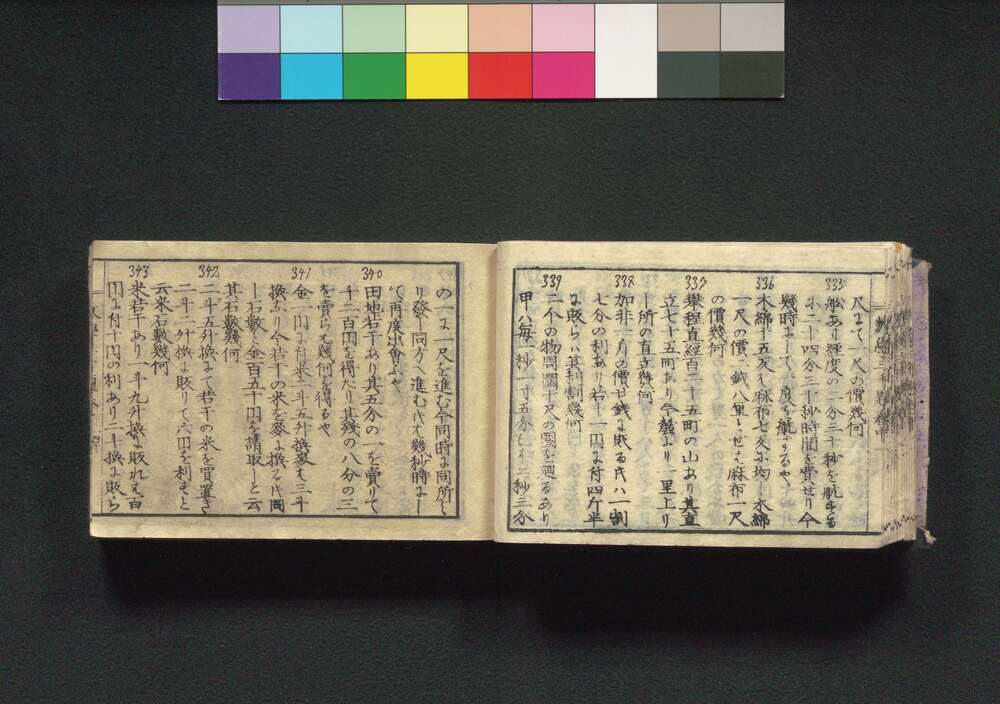 尺にて一尺の價幾何
335
舩あり經度の一分三十秒を航する
に二十四分三十秒時間を費せり今
幾時にして一度を航するや
336
木綿十五反と麻布七反に均し木綿
一尺の價 銭八厘とせは麻布一尺
の價幾何
337
直經百二十五町の山あり其直
立七十五町あり今麓より一里上り
し所の直立幾何
338
加非一斤の價廿銭に敗る氏ハ一割
七分の利あり若し一円に付四斤半
に敗らハ其利割幾何
339
二个の物周圍十尺の圓を廻るあり
甲ハ毎一秒一寸五分 二秒三分
の一に一尺を進む今同時に同所
り發し同方へ進む氏は幾秒時にし
て再度出會ふや
340
田地若干あり其五分の一を賣りて
千二百円を得たり其殘の八分の三
を賣らは幾何を得るや
341
金一円に付米二斗五升換麥は三斗
換なり今若干の米を麥に換る氏同
し石數と金百五十円を請取しと云
其石數幾何
342
二斗五升換にて若干の米を買置き
二斗二升換に敗りて六円を利すと
云米石數幾何
343
米若干あり一斗九升換に敗れは百
円に付十円の利あり二十換に敗ら